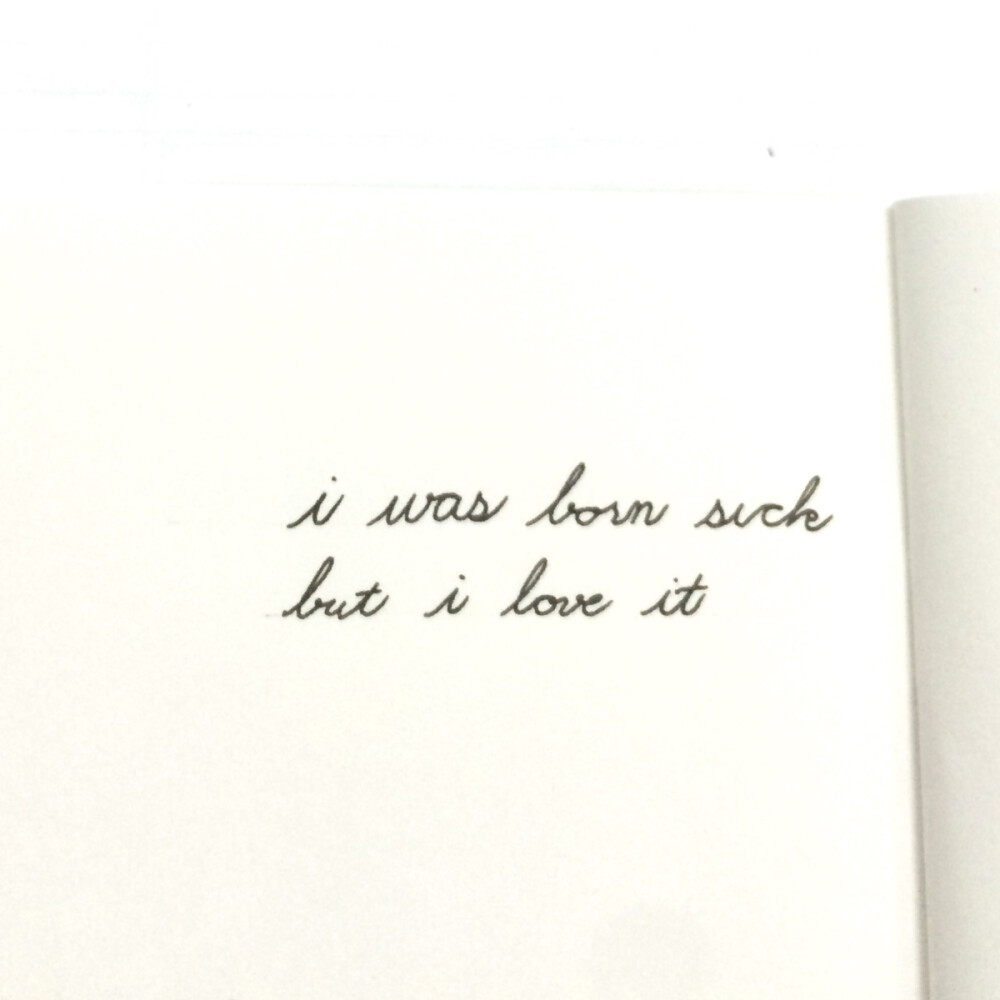 i was born sick
but i love it